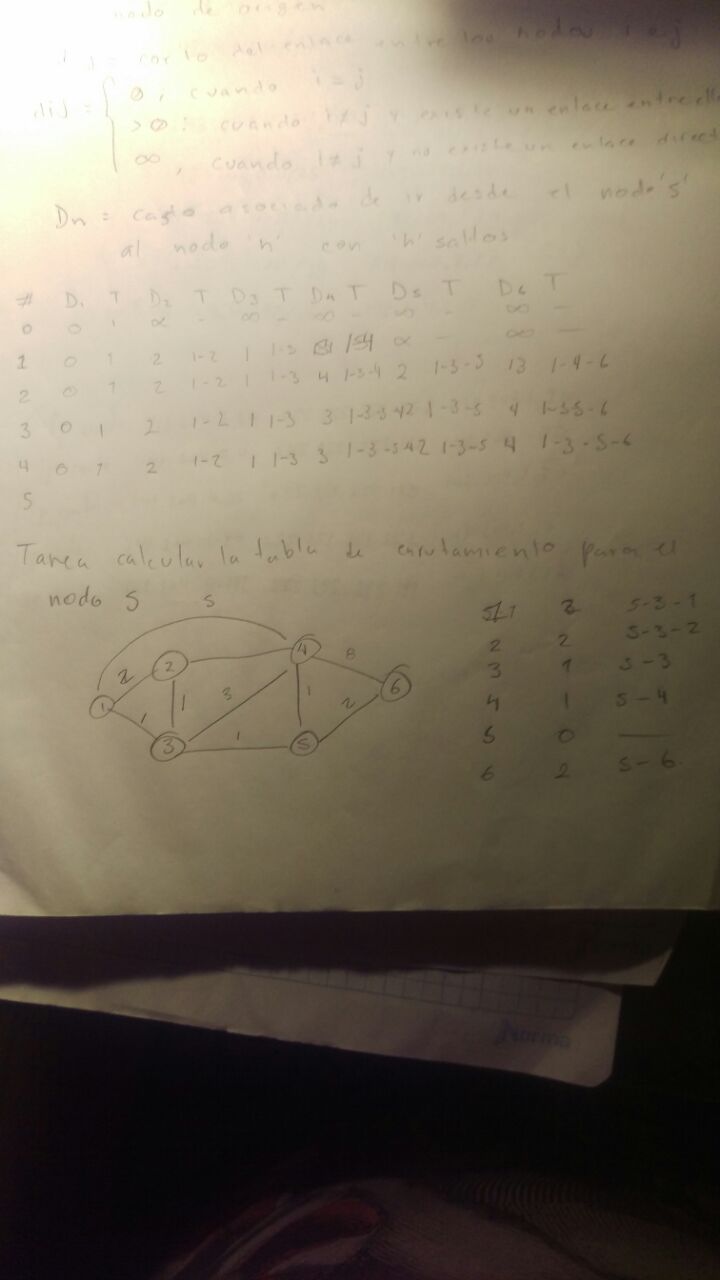 nodo de origen
costo del enlace entre los nodos i a j
dij = { 0, cuando i = j
>0: cuando i ≠ j y existe un enlace entre
∞, cuando i ≠ j y no existe un enlace direct
Dn = costo asociado de ir desde el nodo 's'
al nodo 'n' con 'h' saltos
# D1 T D2 T D3 T D4 T D5 T D6 T
0 0 1 ∝ - ∞ - ∞ - ∞ - ∞ -
1 0 1 2 1-2 1 1-3 ∝ - ∞ -
2 0 1 2 1-2 1 1-3 4 1-3-4 2 1-3-5 13 1-4-6
3 0 1 2 1-2 1 1-3 3 2 1-3-5 4
4 0 1 2 1-2 1 1-3 3 1-3-5-4 2 1-3-5 4 1-3-5-6
5
Tarea calcular la tabla de enrutamiento para el
nodo 5
5
2 2 4 8 6
1 1 3 1 2
1 3 1 5
1 2 5-3-1
2 2 5-3-2
3 1 5-3
4 1 5-4
5 0 —
6 2 5-6
Norma